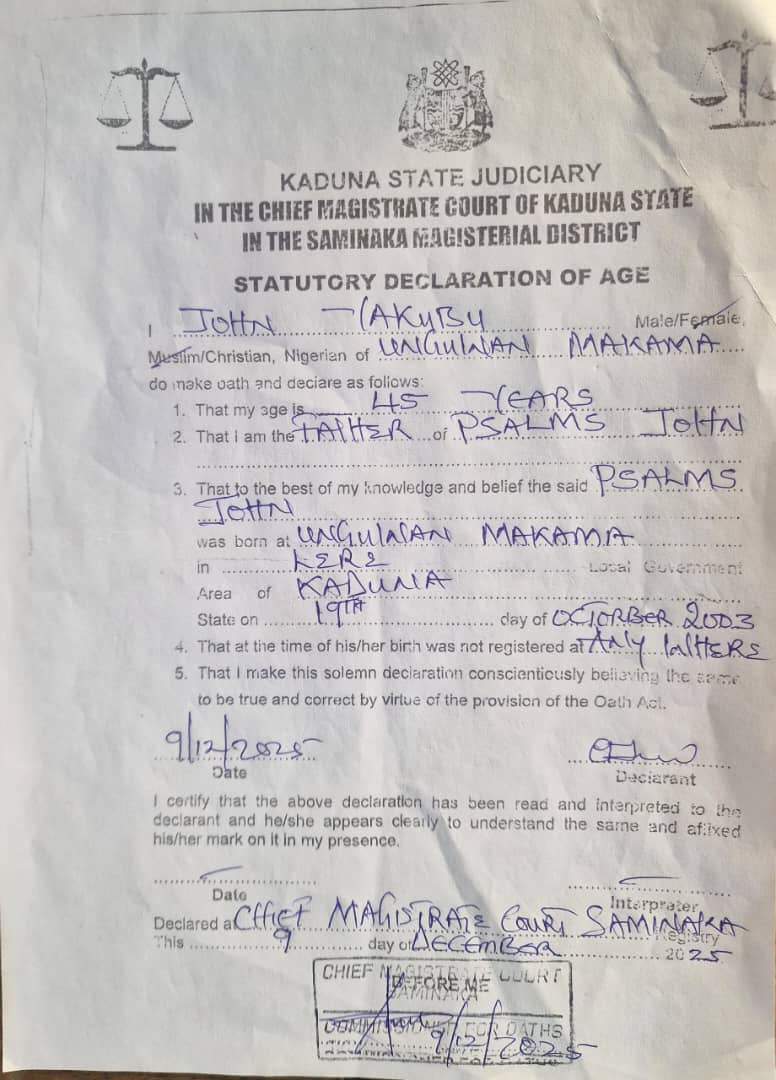 KADUNA STATE JUDICIARY
IN THE CHIEF MAGISTRATE COURT OF KADUNA STATE
IN THE SAMINAKA MAGISTERIAL DISTRICT
STATUTORY DECLARATION OF AGE
I JOHN YAKUBU Male/Female,
Muslim/Christian, Nigerian of UNGUWAN MAKAMA
do make oath and declare as follows:
1. That my age is 45 YEARS
2. That I am the FATHER of PSALMS JOHN
3. That to the best of my knowledge and belief the said PSALMS
JOHN
was born at UNGUWAN MAKAMA
in LERE Local Government
Area of KADUNA
State on 19TH day of OCTORBER 2003
4. That at the time of his/her birth was not registered at ANY WHERE
5. That I make this solemn declaration conscientiously believing the same
to be true and correct by virtue of the provision of the Oath Act.
9/12/2025
Date Declarant
I certify that the above declaration has been read and interpreted to the
declarant and he/she appears clearly to understand the same and affixed
his/her mark on it in my presence.
Date Interprater
Declared at CHIEF MAGISTRATE COURT SAMINAKA Registry
This 9 day of DECEMBER 2025
CHIEF MAGISTRATE COURT
BEFORE ME
SAMINAKA
COMMISSIONER FOR OATHS
9/12/2025